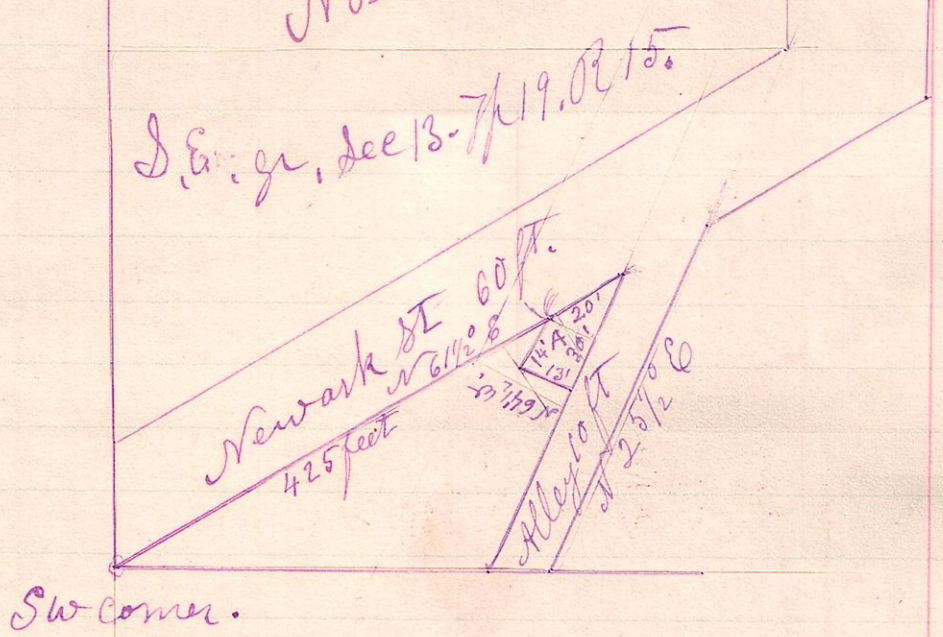 No
S, E, qr, Sec 13. Tp 19. R 15.
Newark St 60 ft.
N 61 1/2° E
425 feet
20'
A
14'
30'
13'
Alley 10 ft
N 25 1/2° E
SW corner.